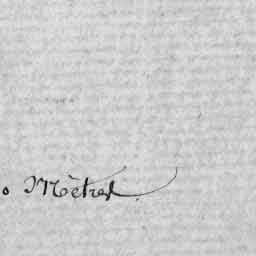 o Métral